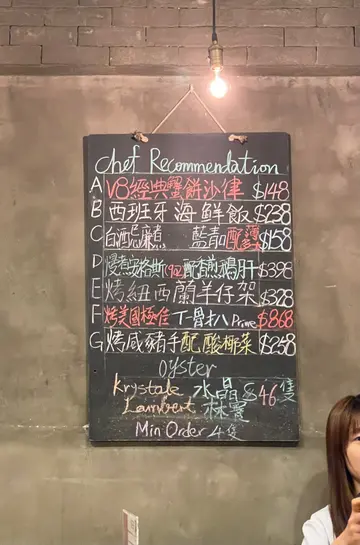 Chef Recommendation
A V8經典蟹餅沙律 $148
B 西班牙海鮮飯 $238
C 白酒忌廉煮 藍青口配薯 $158
D 慢煮安格斯 配香煎鴨肝 $398
E 烤紐西蘭羊仔架 $328
F 烤美國極佳 T-骨扒 Prime $868
G 烤咸豬手配酸椰菜 $258
Oyster
Krystale 水晶 $46隻
Lambert 林寶
Min Order 4隻